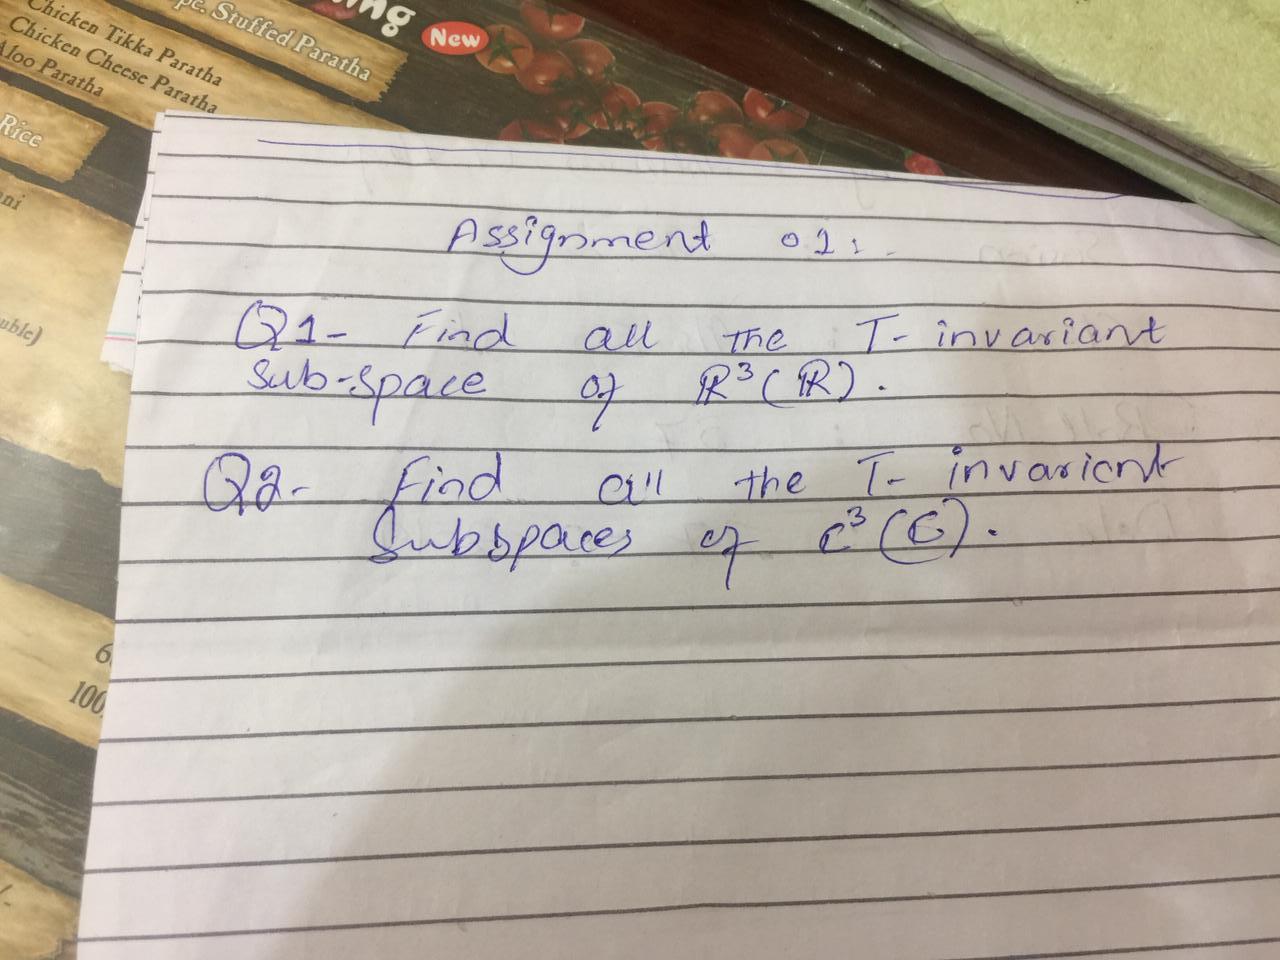 pc. Stuffed Paratha
New
Chicken Tikka Paratha
Chicken Cheese Paratha
Aloo Paratha
Rice
Assignment 01:-
Q1- Find all the T-invariant
Sub-space of ℝ³(ℝ).
Q2- Find all the T-invarient
Subspaces of ℂ³(ℂ).
100